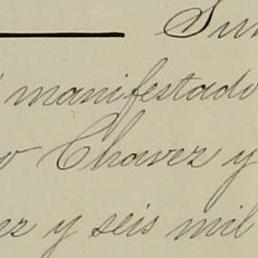 Sun
manifestado
o Chavez y
ez y seis mil